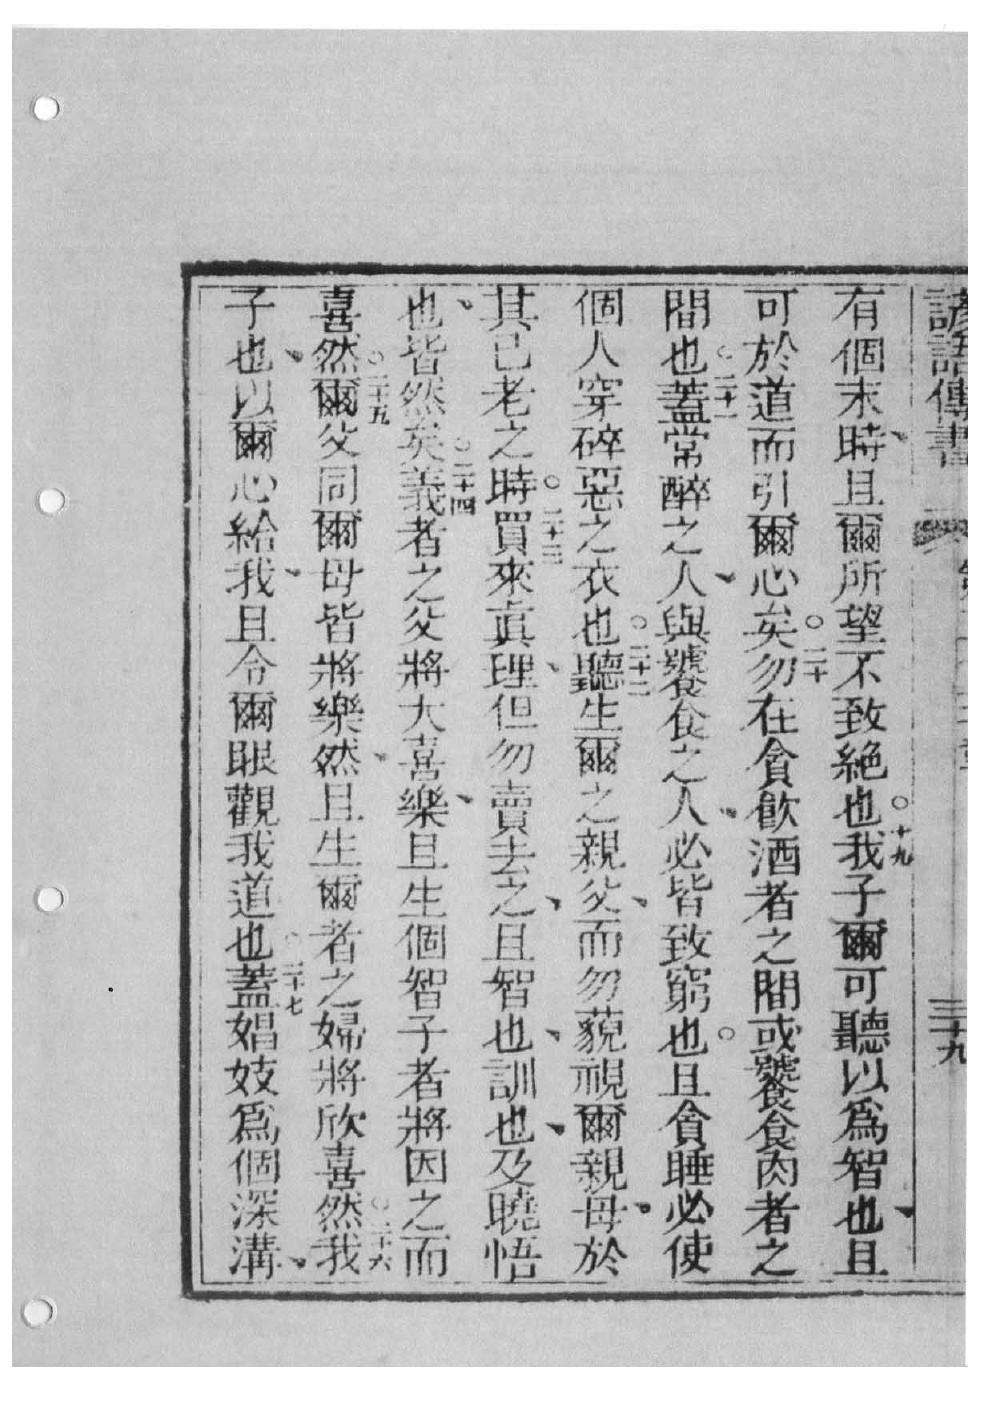 諺語傳書 三十九
有個末時、且爾所望不致絶也。十九我子爾可聽以為智也、且
可於道而引爾心矣。二十勿在貪飮酒者之間或饕食肉者之
間也。二十一蓋常醉之人、與饕食之人、必皆致窮也。且貪睡必使
個人穿碎惡之衣也。二十二聽生爾之親父、而勿藐視爾親母、於
其已老之時。二十三買來眞理、但勿賣去之、且智也、訓也、及曉悟
也、皆然矣。二十四義者之父將大喜樂、且生個智子者將因之而
喜。二十五然爾父同爾母皆將樂然、且生爾者之婦將欣喜然。二十六我
子也、以爾心給我、且令爾眼觀我道也。二十七蓋娼妓為個深溝、